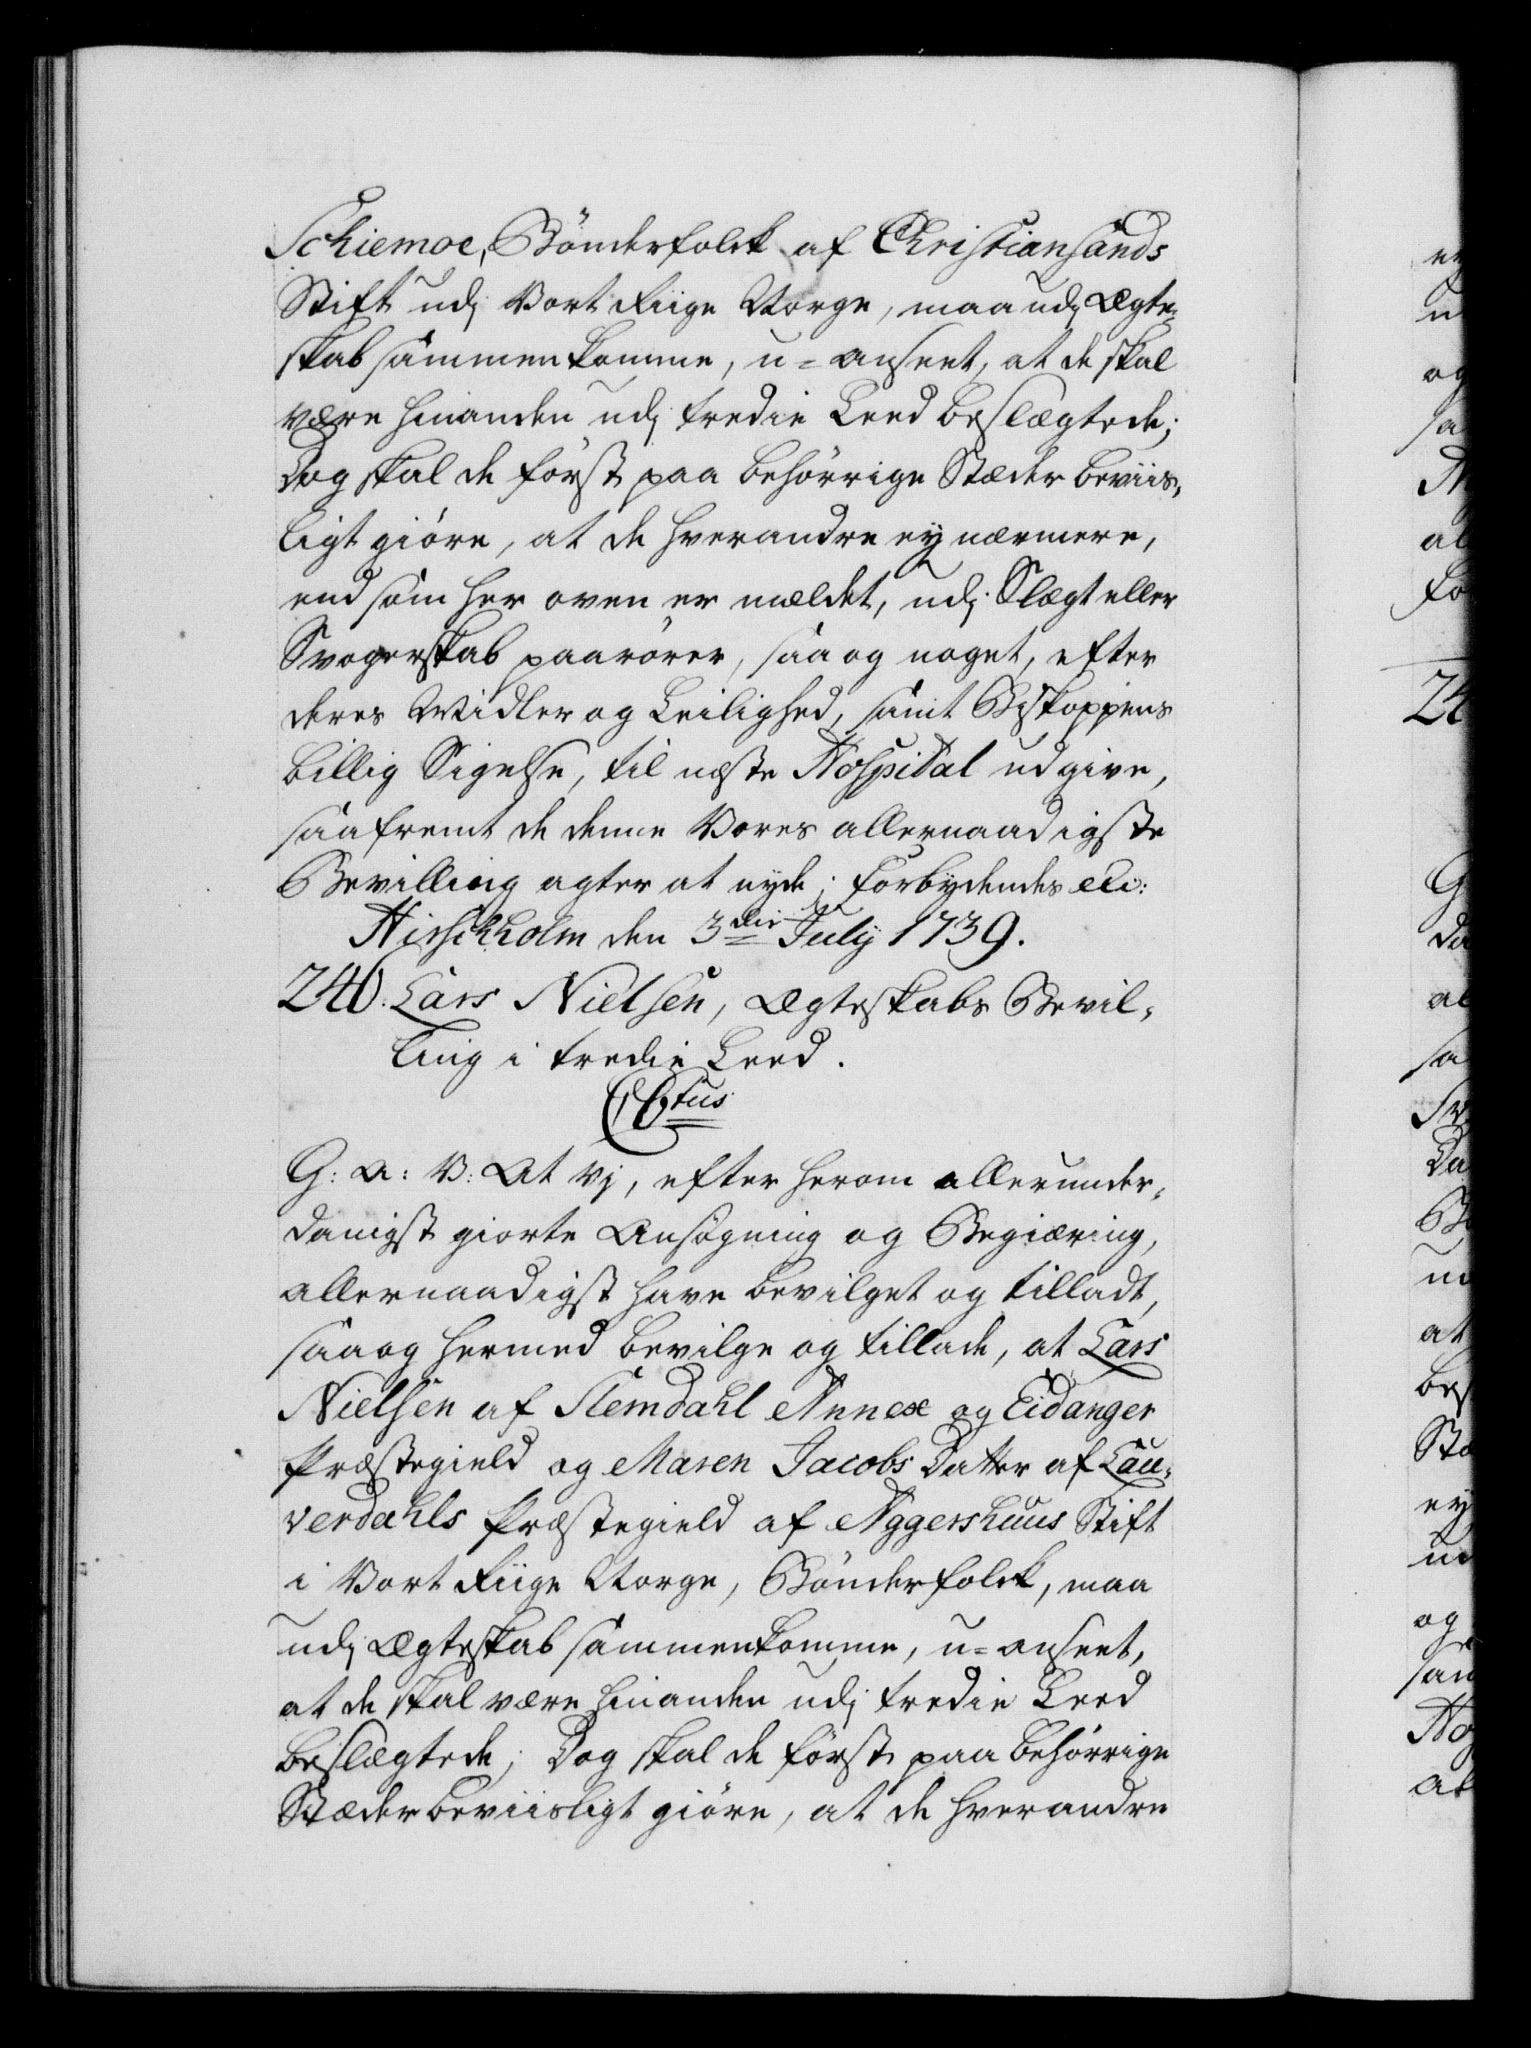 Schiemoe, Bönderfolck af Christiansands
Stift udj Vort Riige Norge, maa udj Ægte-
skab sammenkomme, u=anseet, at de skal
være hinanden udj tredie Leed beslægtede;
Dog skal de først paa behörrige Stæder beviis-
ligt giöre, at de hverandre ey nærmere,
end som her oven er meldet, udj Slægt eller
Svogerskab paarörer, saa og noget, efter
deres Midler og Leilighed, samt Biskoppens
billig Sigelse, til næste Hospital udgive,
saafremt de denne Vores allernaadigste
Bevilling agter at nyde; Forbydendes etc:
Hirschholm den 3die July 1739.
240. Lars Nielsen, Ægteskabs Bevil-
ling i tredie Leed.
C6tus
G: A: V: At Vj, efter herom allerunder-
danigst giorte Ansøgning og Begiæring,
allernaadigst have bevilget og tilladt,
saa og hermed bevilge og tillade, at Lars
Nielsen af Slemdahl Annex og Eidanger
Præstegield og Maren Jacobs Datter af Lau-
verdahls Præstegield af Aggershuus Stift
i Vort Riige Norge, Bönderfolck, maa
udj Ægteskab sammenkomme, u=anseet,
at de skal være hinanden udj tredie Leed
beslægtede; Dog skal de först paa behörrige
Stæder beviisligt giöre, at de hverandre